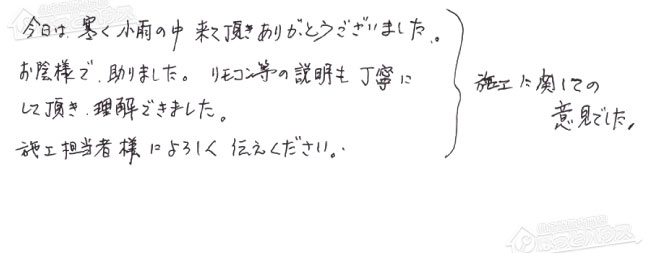 今日は寒く小雨の中来て頂きありがとうございました。
お陰様で、助りました。リモコン等の説明も丁寧に
して頂き、理解できました。
施工担当者様によろしく伝えください。
施工に関しての
意見でした。